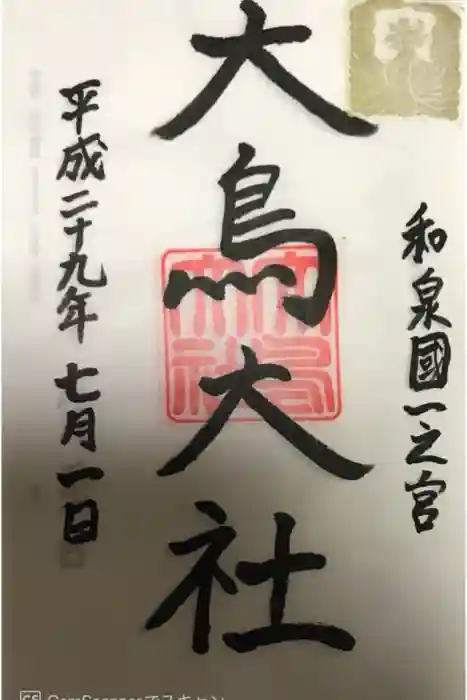 和泉國一之宮
大鳥大社
平成二十九年 七月一日
CS CamScannerでスキャン